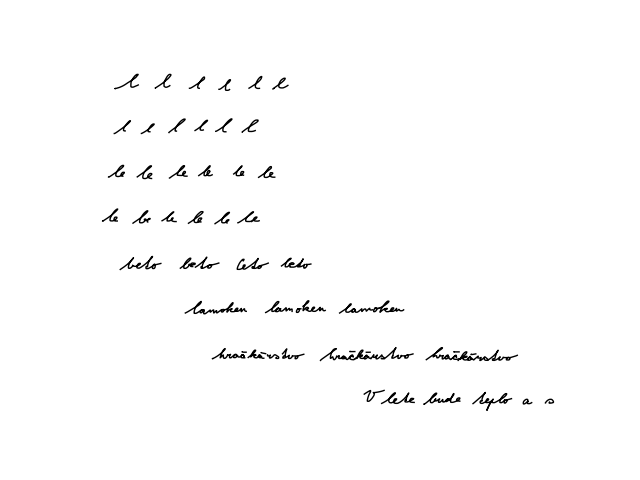 l l l l l l
l l l l l l
le le le le le le
le le le le le le
leto leto leto leto
lamoken lamoken lamoken
hračkárstvo hračkárstvo hračkárstvo
V lete bude teplo a s